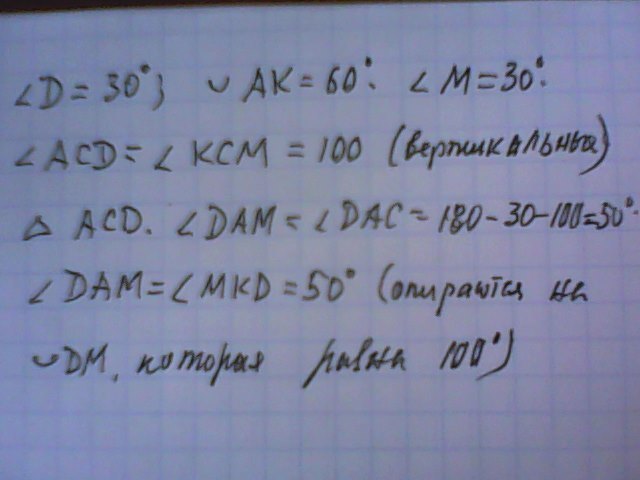 ∠D = 30°; ◡ AK = 60°. ∠M = 30°.
∠ACD = ∠KCM = 100 (вертикальные)
△ ACD. ∠DAM = ∠DAC = 180-30-100=50°.
∠DAM = ∠MKD = 50° (опираются на
◡DM, которая равна 100°)